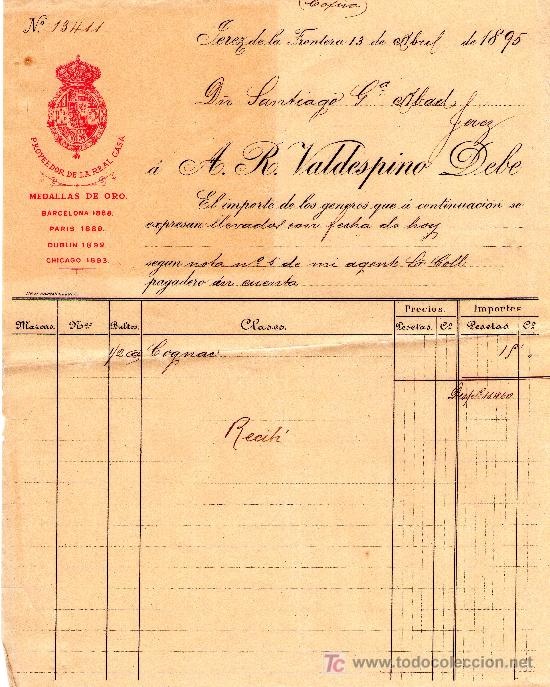 (Copia)
Nº 13411
Jerez de la Frontera 13 de Abril de 1895
Dn Santiago Gª Abad
Jerez
PROVEEDOR DE LA REAL CASA
á A. R. Valdespino Debe
MEDALLAS DE ORO.
BARCELONA 1888.
PARIS 1889.
DUBLIN 1892.
CHICAGO 1893.
El importe de los generos que á continuacion se
expresan llevados con fecha de hoy
segun nota nº 1 de mi agente Sr Coll
pagadero en cuenta
Marcas. Nos. Bultos. Clases. Precios. Importes
Pesetas. Cs. Pesetas. Cs.
1/2 Cognac 15 "
Recibí
TC www.todocoleccion.net